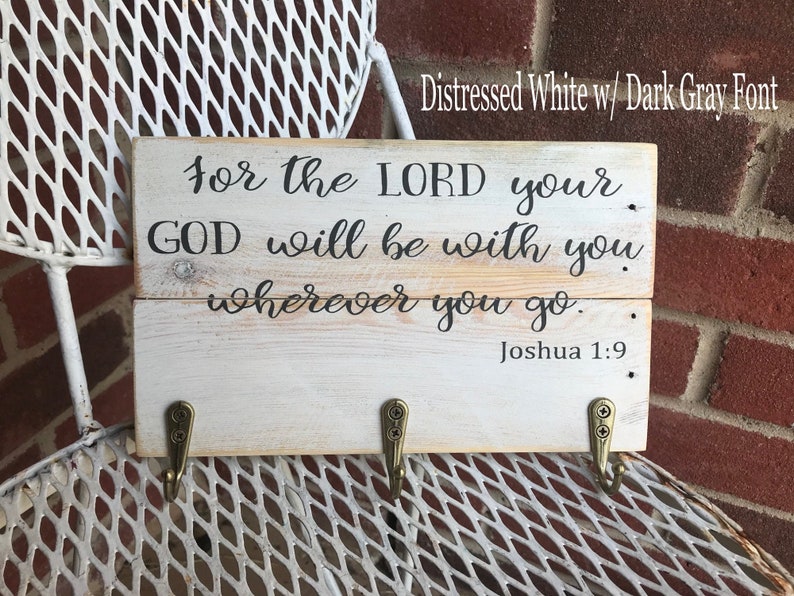 Distressed White w/ Dark Gray Font
For the LORD your
GOD will be with you
wherever you go.
Joshua 1:9